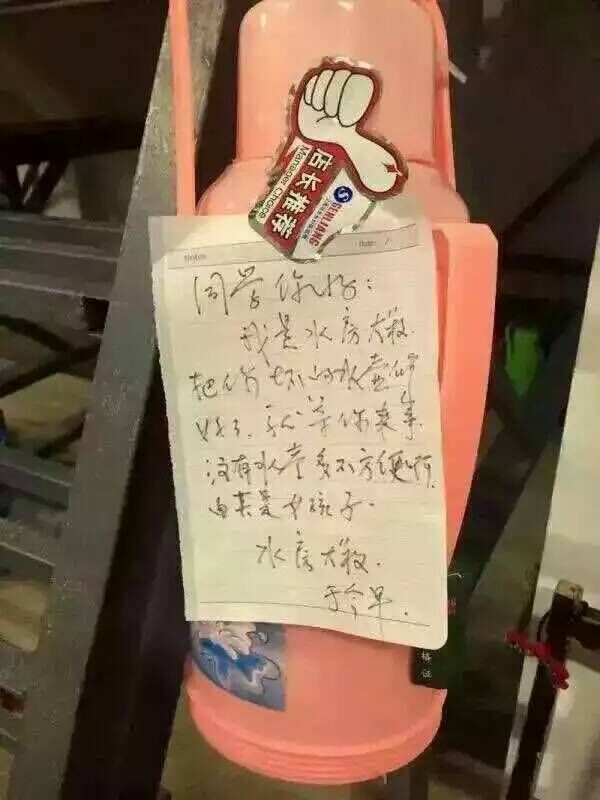 店长推荐
Manager Choice
QINLIANG
Notes
Date: /
同学你好:
我是水房大叔.
把你坏的水壶修
好了、就等你来拿.
没有水壶多不方便啊.
由其是女孩子.
水房大叔.
于今早.
格证